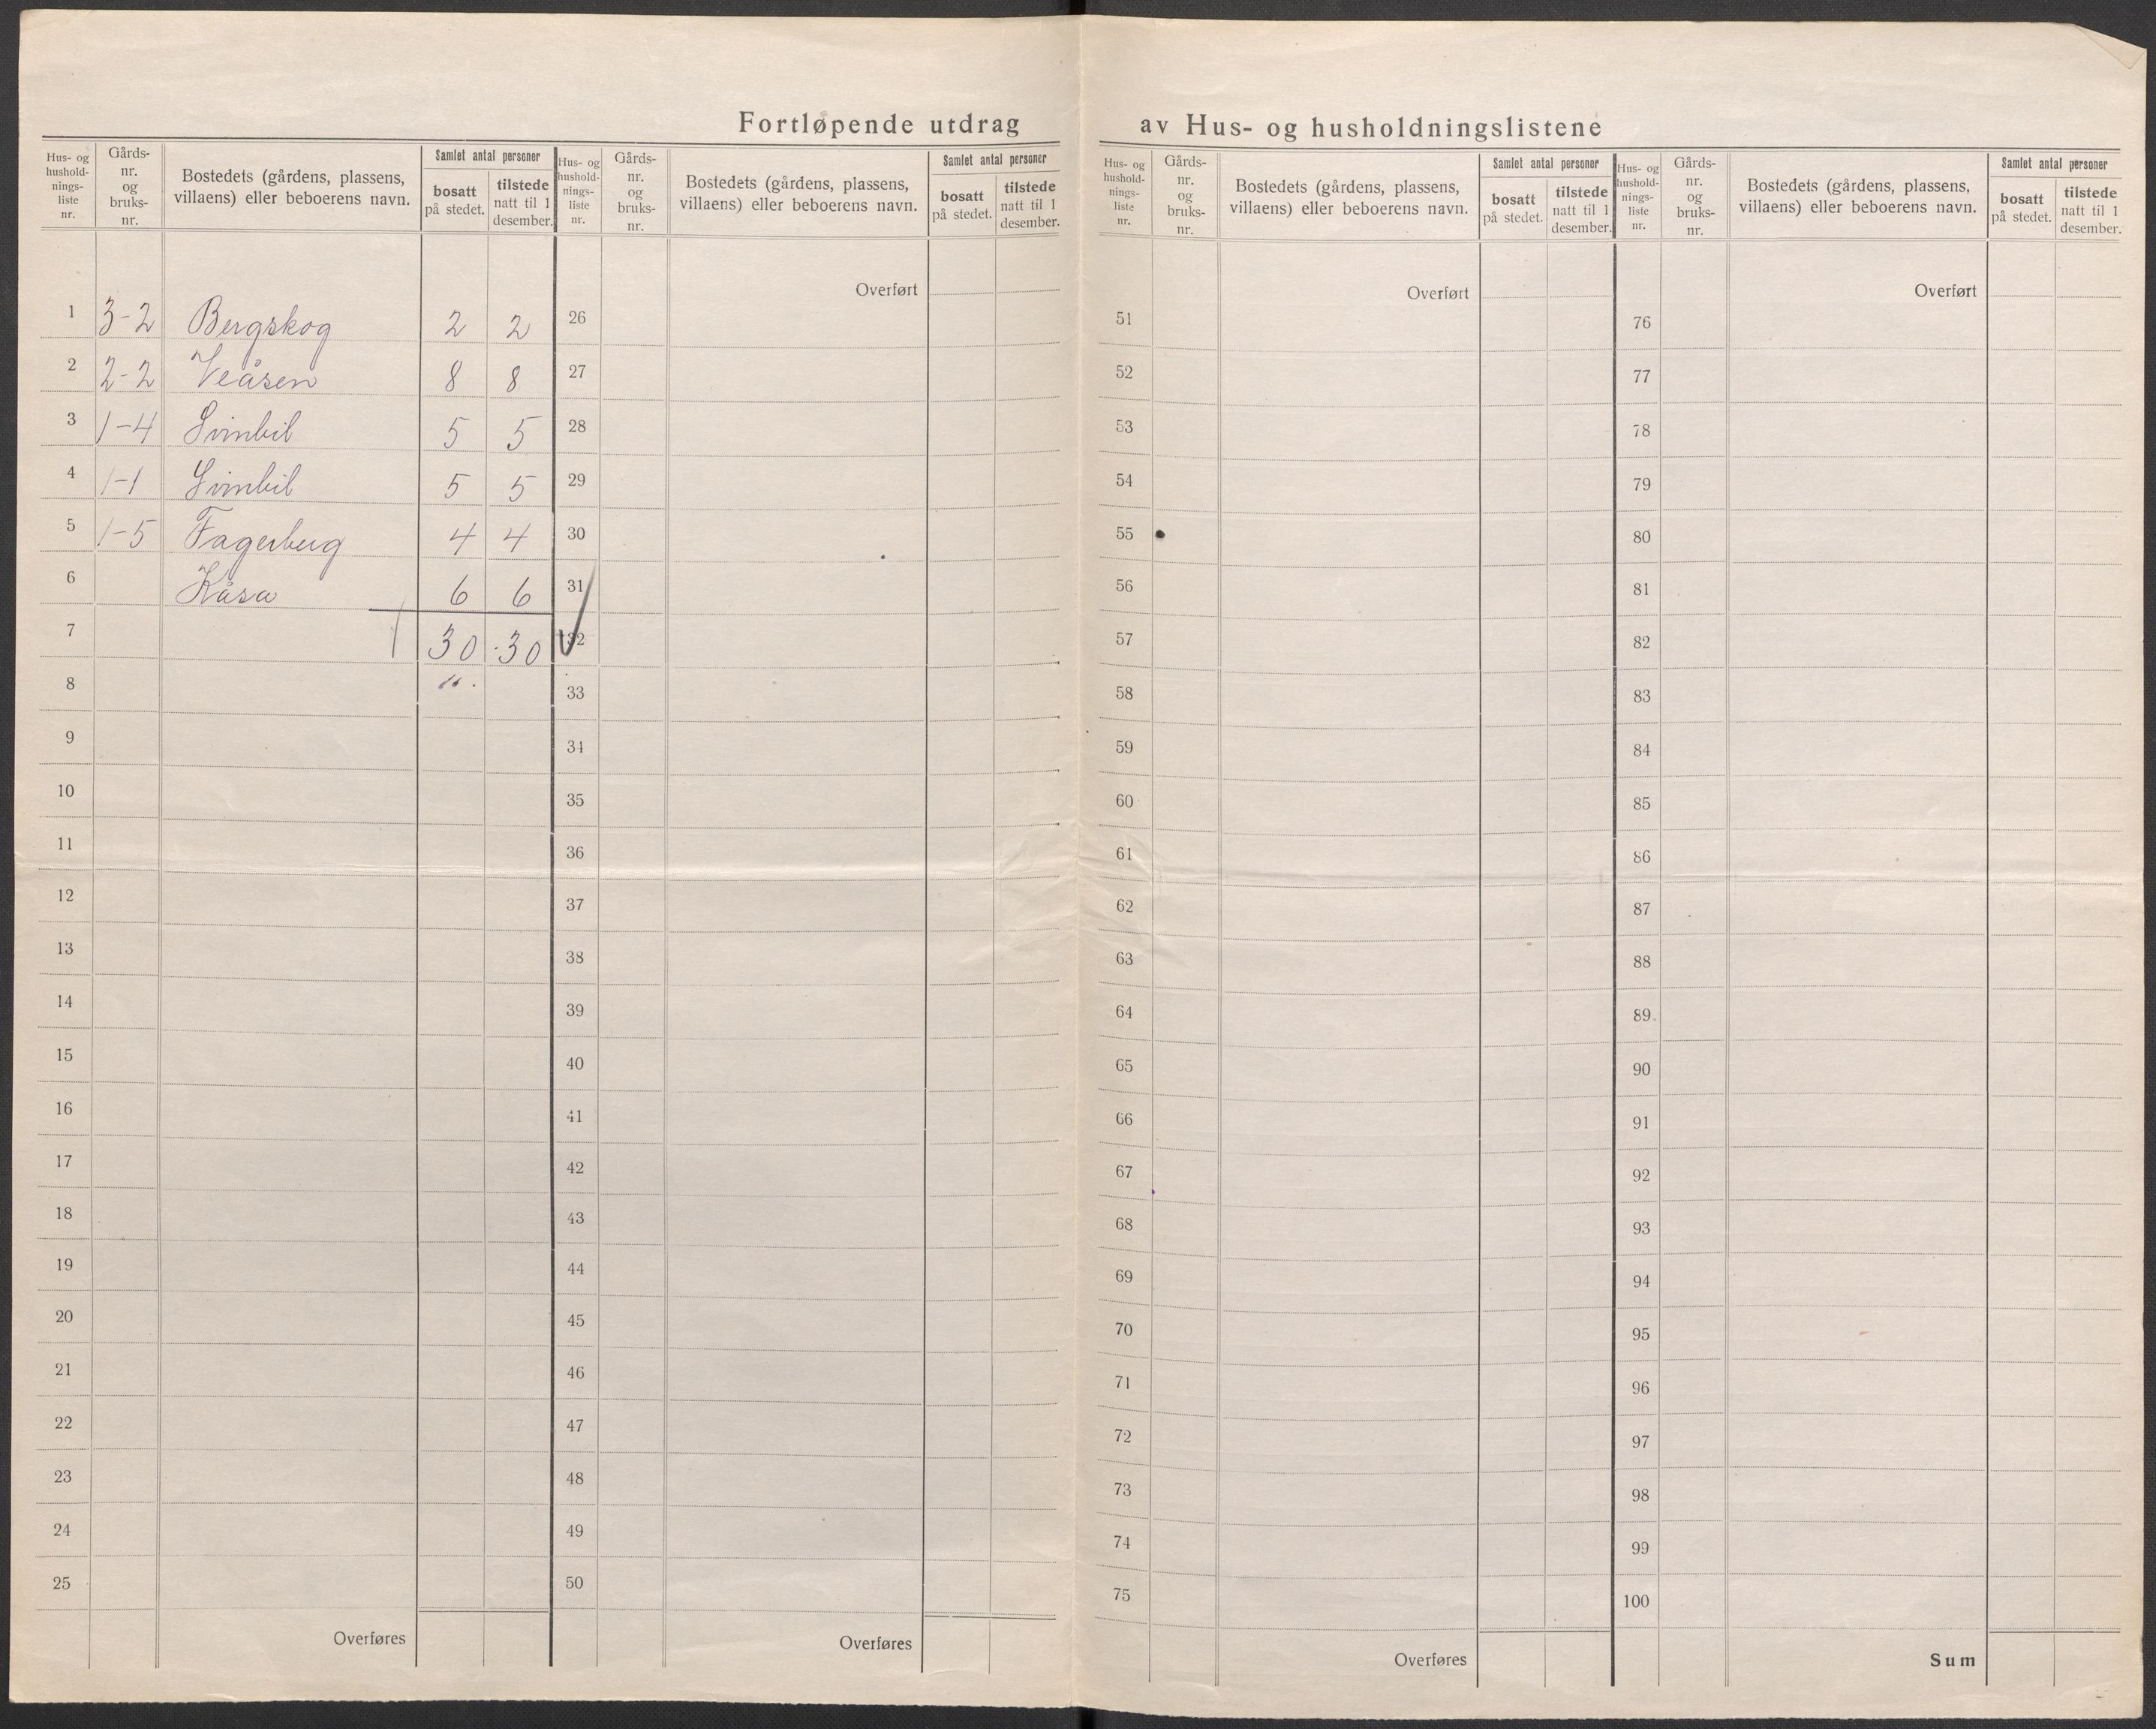 Fortløpende utdrag av Hus- og husholdningslistene
Hus- og hushold-nings-liste nr. Gårds-nr. og bruks-nr. Bostedets (gårdens, plassens, villaens) eller beboerens navn. Samlet antal personer bosatt på stedet. tilstede natt til 1 desember.
1 3-2 Bergskog 2 2
2 2-2 Veåsen 8 8
3 1-4 Simbil 5 5
4 1-1 Simbil 5 5
5 1-5 Fagerberg 4 4
6 Kåsa 6 6
7 30 30
8
9
10
11
12
13
14
15
16
17
18
19
20
21
22
23
24
25
Overføres
Hus- og hushold-nings-liste nr. Gårds-nr. og bruks-nr. Bostedets (gårdens, plassens, villaens) eller beboerens navn. Samlet antal personer bosatt på stedet. tilstede natt til 1 desember.
Overført
26
27
28
29
30
31
32
33
34
35
36
37
38
39
40
41
42
43
44
45
46
47
48
49
50
Overføres
Hus- og hushold-nings-liste nr. Gårds-nr. og bruks-nr. Bostedets (gårdens, plassens, villaens) eller beboerens navn. Samlet antal personer bosatt på stedet. tilstede natt til 1 desember.
Overført
51
52
53
54
55
56
57
58
59
60
61
62
63
64
65
66
67
68
69
70
71
72
73
74
75
Overføres
Hus- og hushold-nings-liste nr. Gårds-nr. og bruks-nr. Bostedets (gårdens, plassens, villaens) eller beboerens navn. Samlet antal personer bosatt på stedet. tilstede natt til 1 desember.
Overført
76
77
78
79
80
81
82
83
84
85
86
87
88
89
90
91
92
93
94
95
96
97
98
99
100
Sum